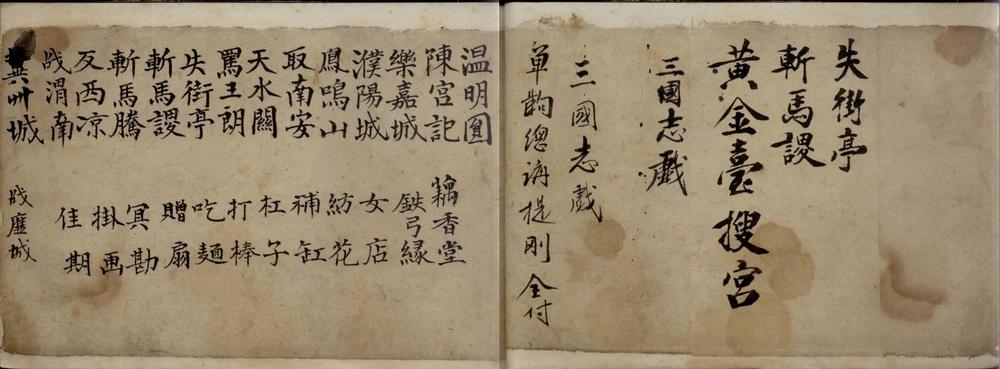 失街亭
斬馬謖
黃金臺搜宮
三國志戲
三國志戲
单鞫總講提剛全付
温明圎
陳宮記
樂嘉城
濮陽城
鳳鳴山
取南安
天水關
罵王朗
失街亭
斬馬謖
斬馬騰
反西凉
战渭南
冀州城
藕香堂
鉄弓縁
女店
紡花
補缸
杠子
打棒
吃麵
贈扇
冥勘
掛画
佳期
战城